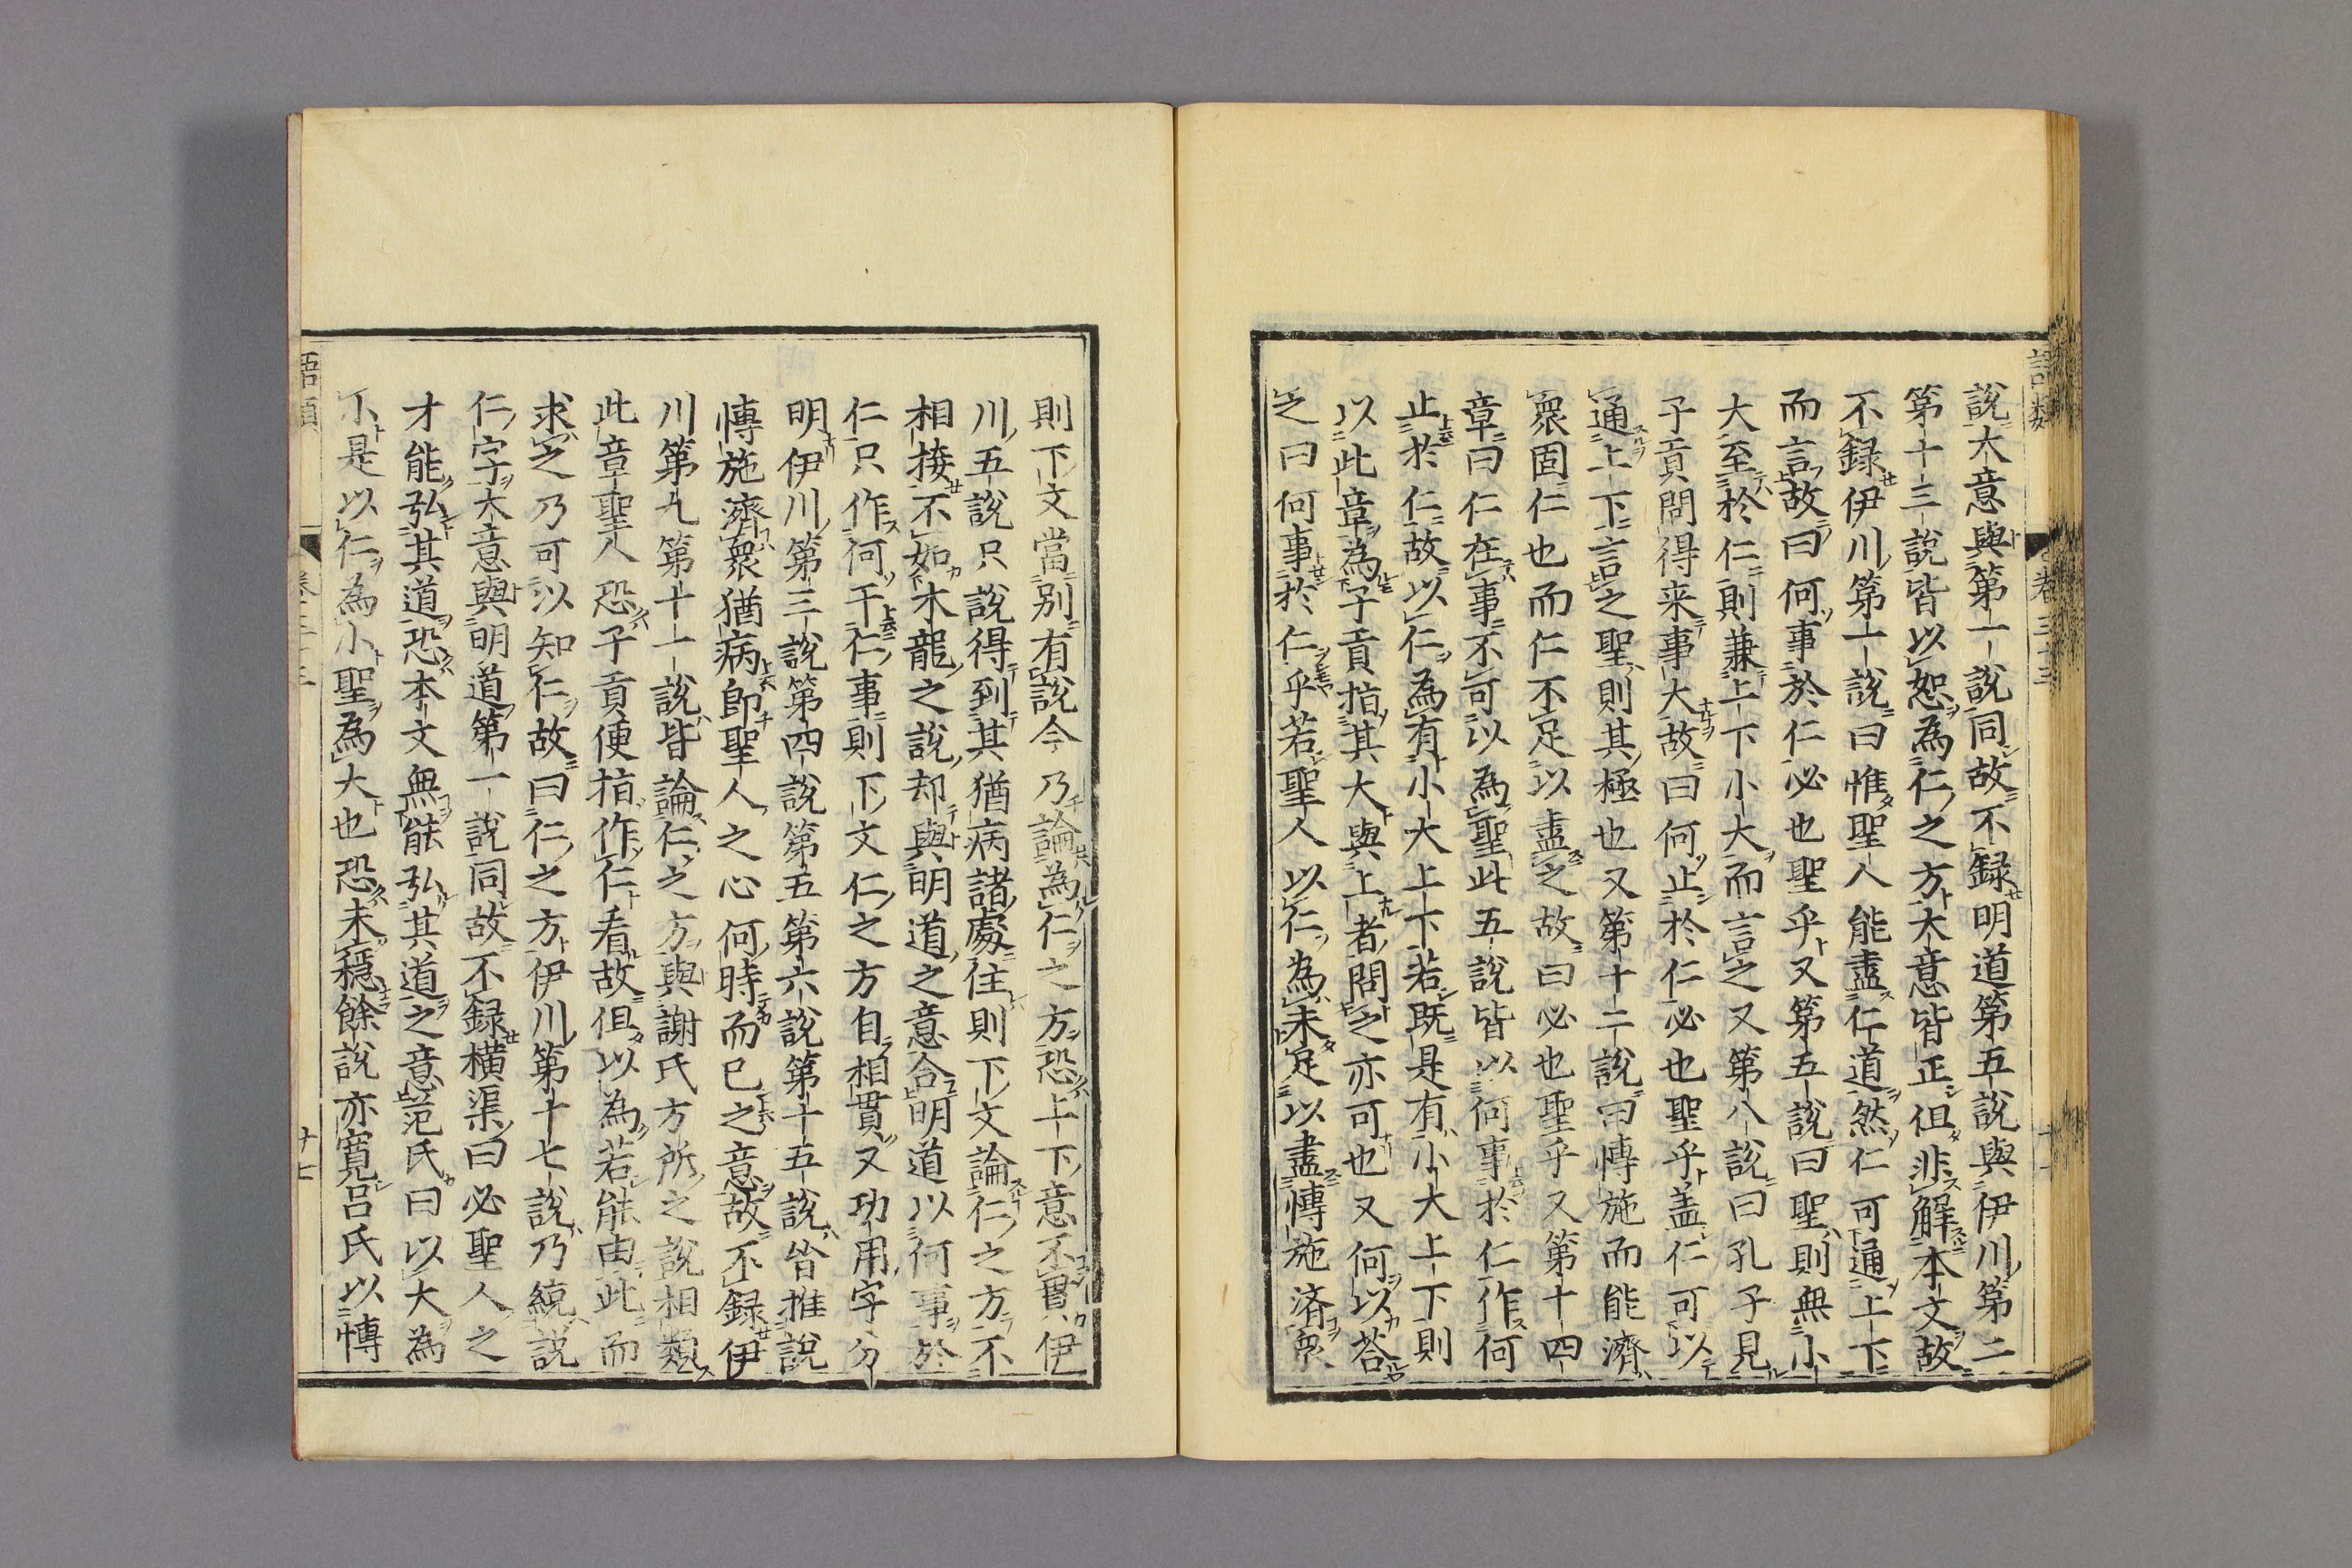 語類
卷三十三
說大意與第一說同故不録明道第五說與伊川第二
第十三說皆以恕為仁之方大意皆正但非解本文故
不録伊川第一說曰惟聖人能盡仁道然仁可通上下
而言故曰何事於仁必也聖乎又第五說曰聖則無小
大至於仁則兼上下小大而言之又第八說曰孔子見
子貢問得来事大故曰何止於仁必也聖乎盖仁可以
通上下言之聖則其極也又第十二說曰愽施而能濟
衆固仁也而仁不足以盡之故曰必也聖乎又第十四
章曰仁在事不可以為聖此五說皆以何事於仁作何
止於仁故以仁為有小大上下若既是有小大上下則
以此章為子貢指其大與上者問之亦可也又何以荅
之曰何事於仁乎若聖人以仁為未足以盡愽施済衆
則下文當别有說今乃論為仁之方恐上下意不貫伊
川五說只說得到其猶病諸處住則下文論仁之方不
相接不如木龍之說却與明道之意合明道以何事於
仁只作何干仁事則下文仁之方自相貫又功用字分
明伊川第三說第四說第五第六說第十五說皆推說
愽施濟衆猶病即聖人之心何時而已之意故不録伊
川第九第十一說皆論仁之方與謝氏方所之說相類
此章聖人恐子貢便指作仁看故但以為若能由此而
求之乃可以知仁故曰仁之方伊川第十七說乃統説
仁字大意與明道第一說同故不録横渠曰必聖人之
才能弘其道恐本文無能弘其道之意范氏曰以大為
不是以仁為小聖為大也恐未穩餘説亦寛呂氏以愽
語類
卷三十三
廿七